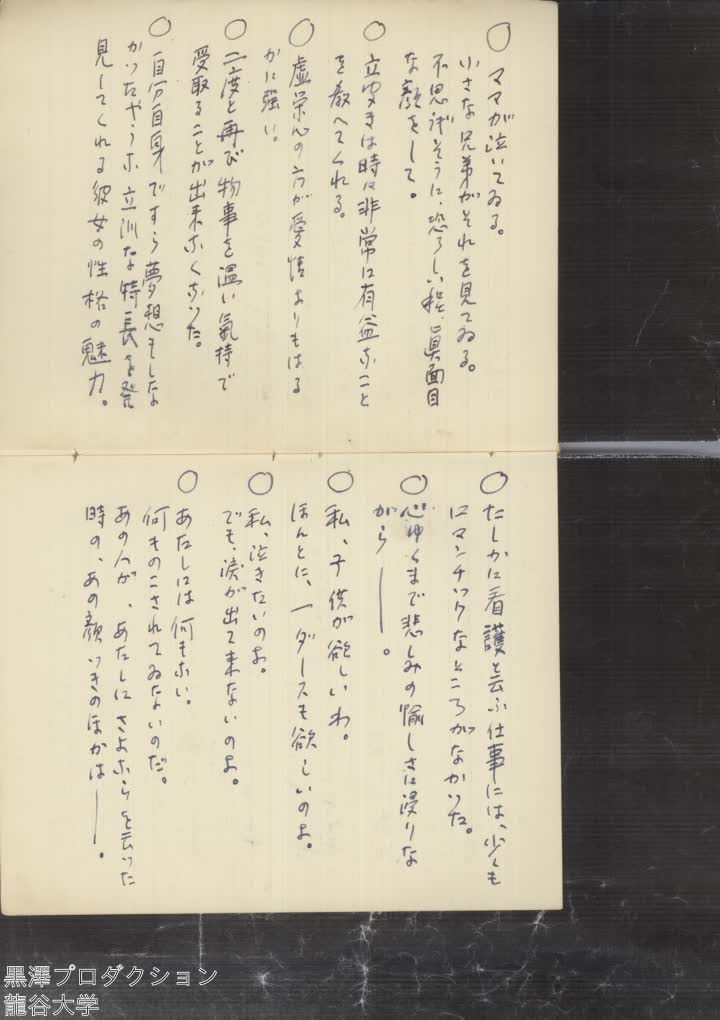 ○ ママが泣いてゐる。
小さな兄弟がそれを見てゐる。
不思ぎそうに、恐ろしい程、眞面目
な顔をして。
○ 立聞きは時に非常に有益なこと
を教へてくれる。
○ 虚栄心の方が愛情よりもはる
かに強い。
○ 二度と再び物事を温い氣持で
受取ることが出来なくなった。
○ 自分自身ですら夢想もしな
かったやうな立派な特長を発
見してくれる彼女の性格の魅力。
○ たしかに看護と云ふ仕事には、少くも
ロマンチックなところがなかった。
○ 心ゆくまで悲しみの愉しさに浸りな
がら——。
○ 私、子供が欲しいわ。
ほんとに、一ダースも欲しいのよ。
○ 私、泣きたいのよ。
でも、涙が出て来ないのよ。
○ あたしには何もない。
何ものこされてゐないのだ。
あの人が、あたしにさよならを云った
時の、あの顔つきのほかは——。
黒澤プロダクション
龍谷大学